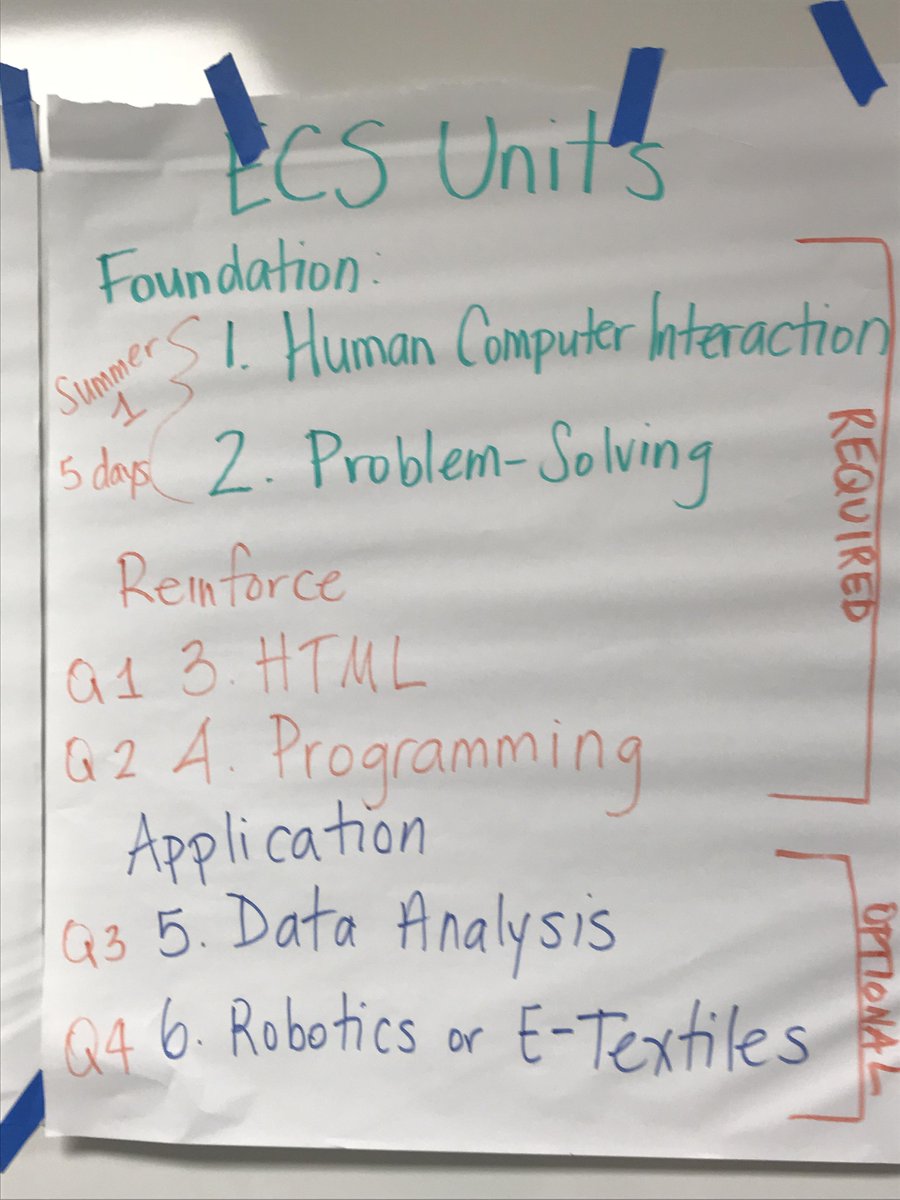 ECS Units
Foundation:
Summer 1 1. Human Computer Interaction
5 days 2. Problem-Solving
Reinforce
Q1 3. HTML
Q2 4. Programming
REQUIRED
Application
Q3 5. Data Analysis
Q4 6. Robotics or E-Textiles
OPTIONAL